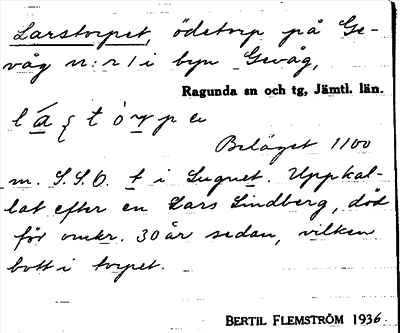 Larstorpet, ödetorp på Ge-
våg n:r 1 i byn Gevåg,
Ragunda sn och tg, Jämtl. län.
Beläget 1100
m. S.S.O. t i Lugnet. Uppkal-
lat efter en Lars Lindberg, död
för omkr. 30 år sedan, vilken
bott i torpet.
BERTIL FLEMSTRÖM 1936